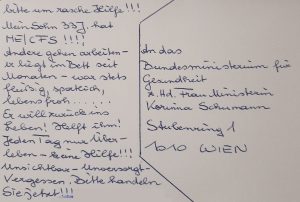 bitte um rasche Hilfe!!!
Mein Sohn 33J, hat
ME/CFS !!!!
Andere gehen arbeiten –
er liegt im Bett seit
Monaten – war stets
fleißig, sportlich,
lebensfroh......
Er will zurück ins
Leben! Helft ihm!
Jeden Tag nur Über-
leben – keine Hilfe!!!
Unsichtbar – Unversorgt –
Vergessen. Bitte handeln
Sie jetzt!!!
An das
Bundesministerium für
Gesundheit
z. Hd. Frau Ministerin
Korinna Schumann
Stubenring 1
1010 WIEN